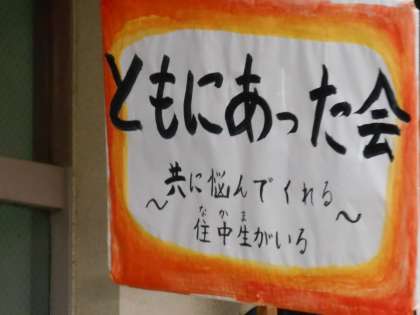 ともにあった会
～共に悩んでくれる
なかま
住中生がいる～